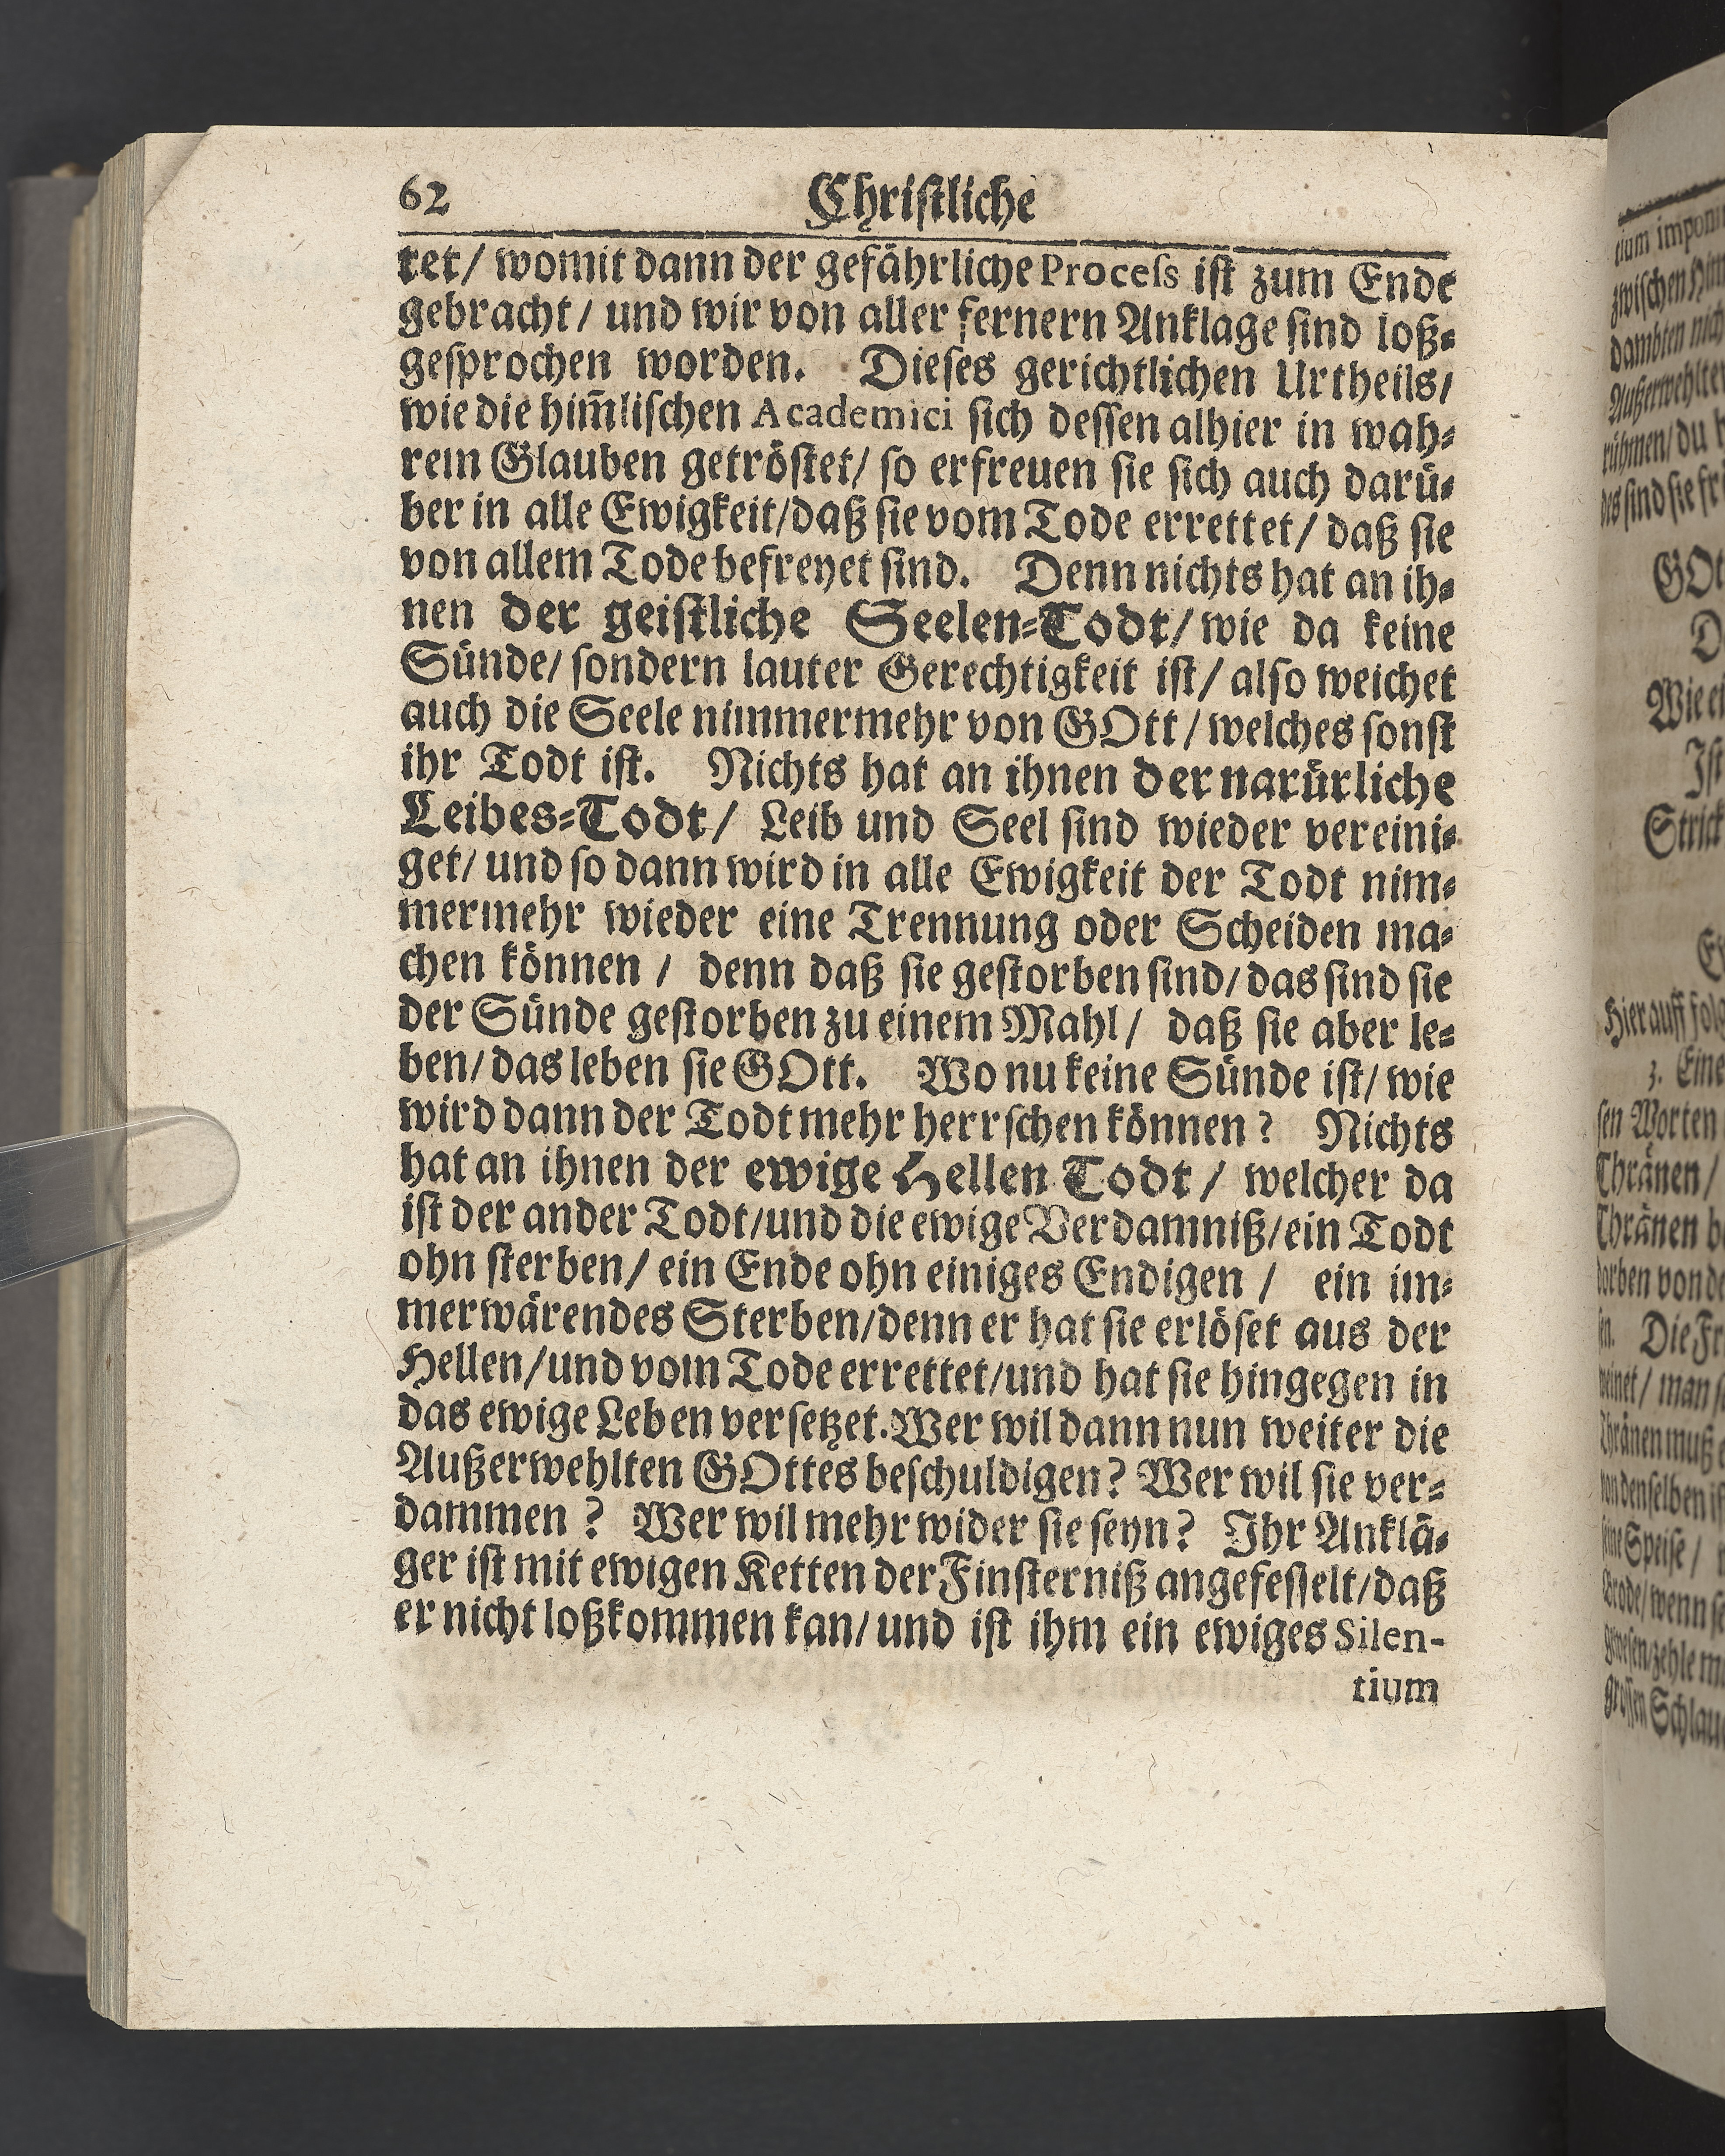 62 Christliche
tet/ womit dann der gefährliche Process ist zum Ende
gebracht/ und wir von aller fernern Anklage sind loß-
gesprochen worden. Dieses gerichtlichen Urtheils/
wie die him̃lischen Academici sich dessen alhier in wah-
rem Glauben getröstet/ so erfreuen sie sich auch darü-
ber in alle Ewigkeit/daß sie vom Tode errettet/ daß sie
von allem Tode befreyet sind. Denn nichts hat an ih-
nen der geistliche Seelen-Todt/ wie da keine
Sünde/ sondern lauter Gerechtigkeit ist/ also weichet
auch die Seele nimmermehr von GOtt/ welches sonst
ihr Todt ist. Nichts hat an ihnen der natürliche
Leibes-Todt/ Leib und Seel sind wieder vereini-
get/ und so dann wird in alle Ewigkeit der Todt nim-
mermehr wieder eine Trennung oder Scheiden ma-
chen können / denn daß sie gestorben sind/ das sind sie
der Sünde gestorben zu einem Mahl/ daß sie aber le-
ben/ das leben sie GOtt. Wo nu keine Sünde ist/ wie
wird dann der Todt mehr herrschen können? Nichts
hat an ihnen der ewige Hellen Todt / welcher da
ist der ander Todt/und die ewige Verdamniß/ein Todt
ohn sterben/ ein Ende ohn einiges Endigen / ein im-
merwärendes Sterben/denn er hat sie erlöset aus der
Hellen/und vom Tode errettet/und hat sie hingegen in
das ewige Leben versetzet. Wer wil dann nun weiter die
Außerwehlten GOttes beschuldigen? Wer wil sie ver-
dammen ? Wer wil mehr wider sie seyn? Ihr Anklä-
ger ist mit ewigen Ketten der Finsterniß angefesselt/daß
er nicht loßkommen kan/ und ist ihm ein ewiges Silen-
tium
tium
zwischen
dambten
rühmen/ du
Wie
Hierauff
3. Eine
sen Worten
Thränen /
Thränen